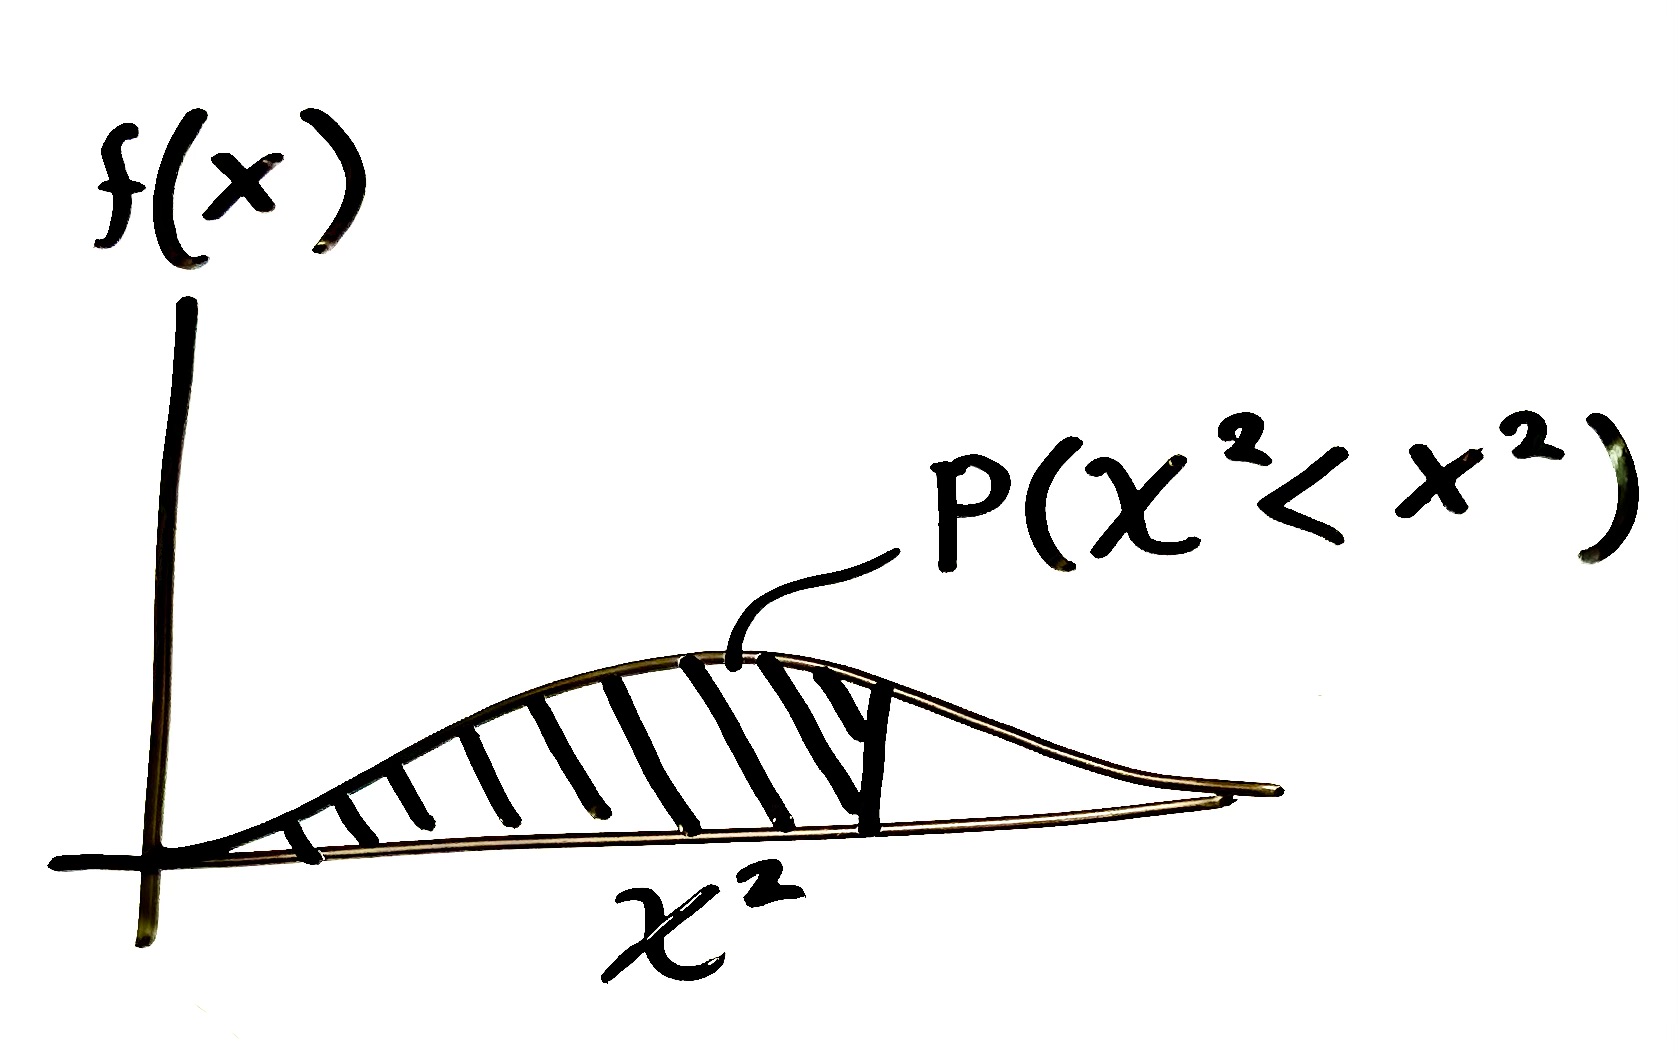 f(x)
P(χ²< x²)
χ²